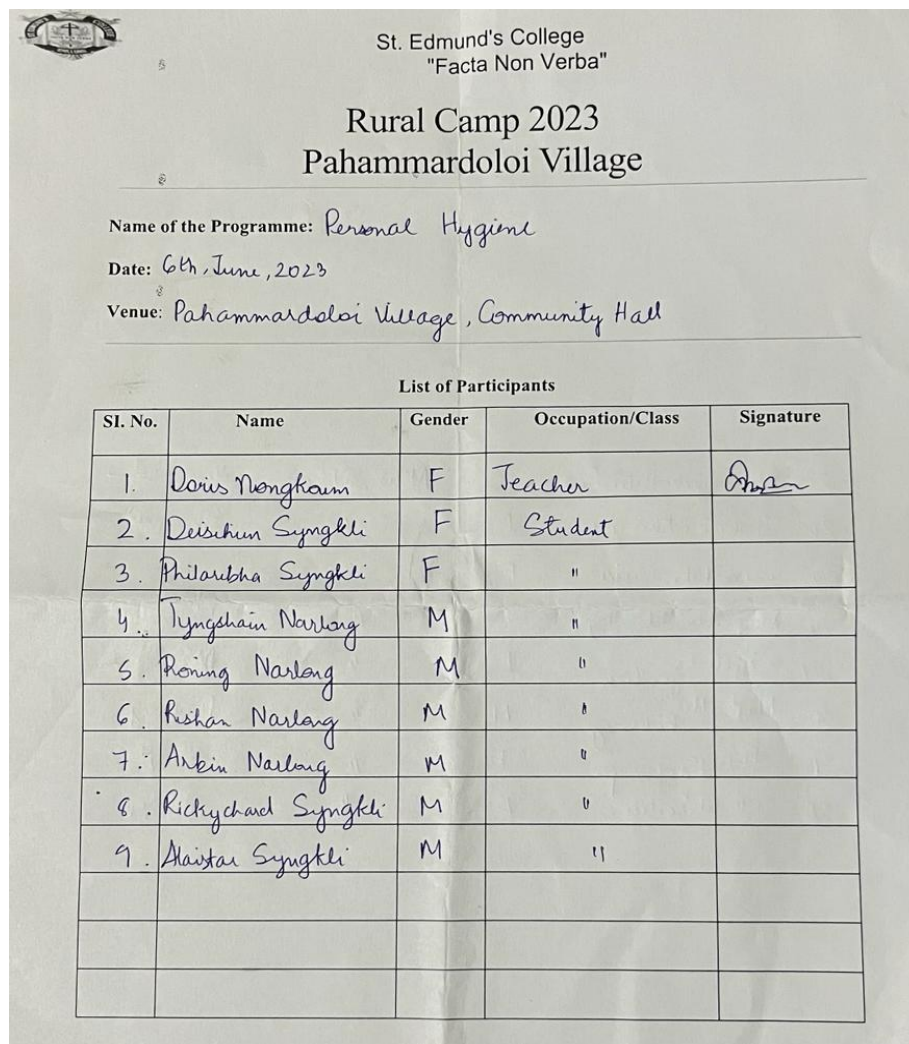 St. Edmund's College
"Facta Non Verba"
Rural Camp 2023
Pahammardoloi Village
Name of the Programme: Personal Hygiene
Date: 6th, June, 2023
Venue: Pahammardoloi Village, Community Hall
List of Participants
SI. No. Name Gender Occupation/Class Signature
1. Doris Nongkoum F Teacher
2. Deischun Syngkli F Student
3. Philaribha Syngkli F "
4. Tyngshain Narlong M "
5. Roning Narlong M "
6. Rishan Narlong M "
7. Arkin Narlong M "
8. Rickychard Syngkli M "
9. Alaistar Syngkli M "